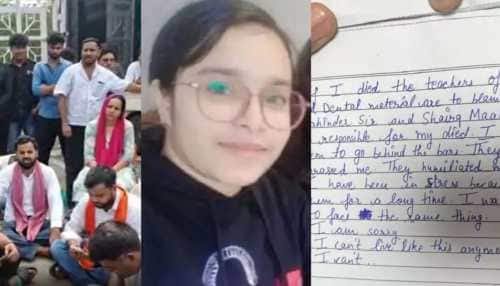 If I died the teachers of
d Dental material are to blam
Sir and Shairg Maa
responsible for my died I
em to go behind the bars They
arassed me They humiliated
I have been in stress becau
em for a long time I wa
o face the same thing.
I am sorry
I can't live like this anymo
I won't..